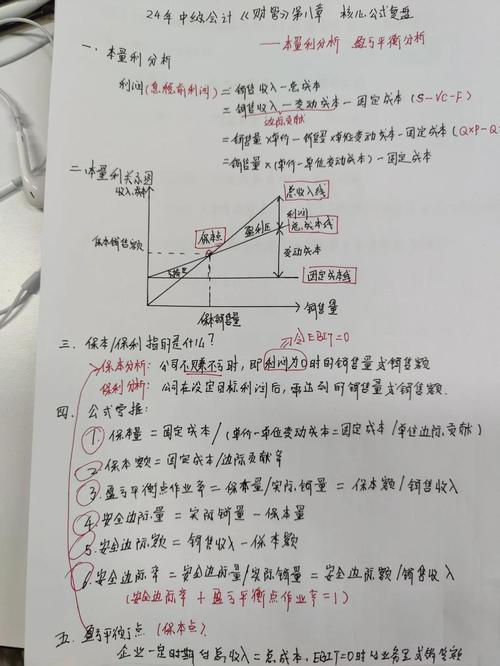 24年中级会计《财管》第八章 核心公式复盘
——本量利分析 盈亏平衡分析
一、本量利分析
利润(息税前利润)=销售收入-总成本
=销售收入-变动成本-固定成本(S-VC-F)
边际贡献
=销售量×单价-销售量×单位变动成本-固定成本(Q×P-Q
=销售量×(单价-单位变动成本)-固定成本
二、本量利关系图
收入、成本
总收入线
利润
保本销售额
保本点
盈利区
总成本线
变动成本
固定成本线
保本销售量
销售量
三、保本/保利指的是什么?
令EBIT=0
保本分析:公司不赚不亏时,即利润为0时的销售量或销售额
保利分析:公司在设定目标利润后,需达到的销售量或销售额.
四、公式掌握:
1.保本量=固定成本/(单价-单位变动成本=固定成本/单位边际贡献)
2.保本额=固定成本/边际贡献率
3.盈亏平衡点作业率=保本量/实际销量=保本额/销售收入
4.安全边际量=实际销量-保本量
5.安全边际额=销售收入-保本额
6.安全边际率=安全边际量/实际销售量=安全边际额/销售收入
(安全边际率+盈亏平衡点作业率=1)
五、盈亏平衡点(保本点?)
企业一定时期的总收入=总成本,EBIT=0时的业务量或销售额